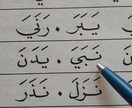 يَبَرَ . رَنَيَ
نَبَيَ . يَدَنَ
نَزَلَ . نَذَرَ